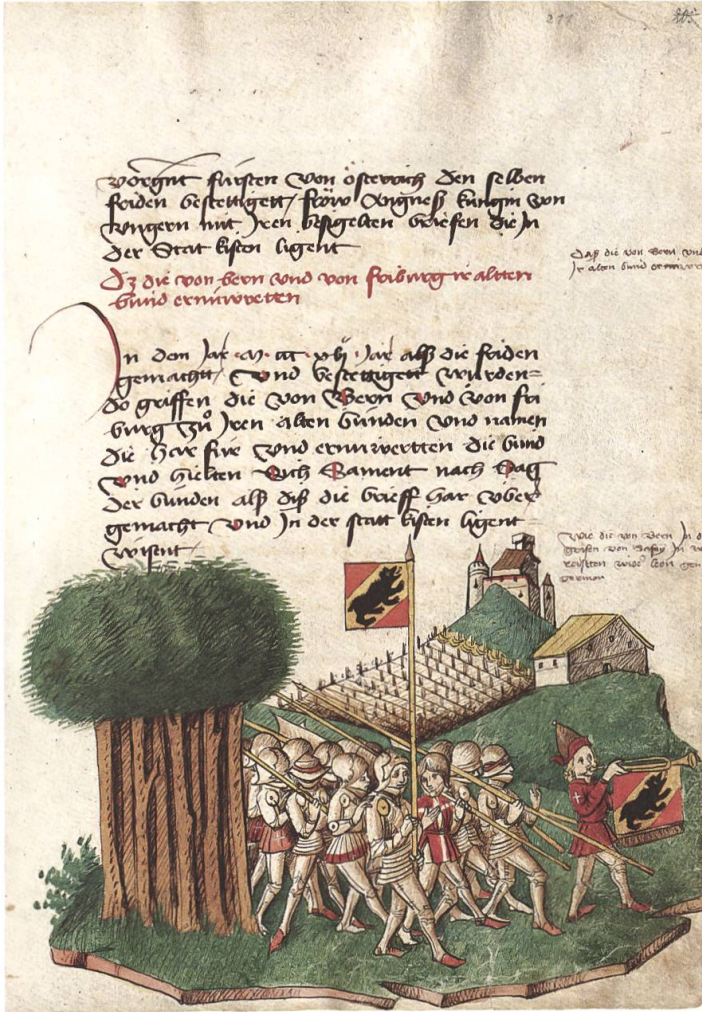 211
vorgnt fürsten von österrich den selben
friden bestettigett / fröw Angneß küngin von
vngern mit Iren besigelten brieffen die In
der Statt kisten ligent
Dz die von bern vnd von friburg ir altten
bünd ernüwreten
In dem Jar m ccc xlvij Jar alß die friden
gemacht vnd bestettigett wurden
do griffen die von Bern vnd von fri
burg zů Iren alten bünden vnd namen
die har für vnd ernüwertten die bünd
vnd hielten sich sament nach sag
der bünden alß diß die brieff har vber
gemacht vnd In der statt kisten ligent
wisent
Daß die von Bern vnd
Ir alten bünd
Wie die von Bern In d
grafen von Safoy In
reisten wider